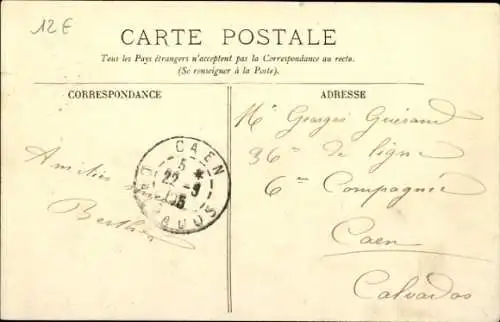 12€
CARTE POSTALE
Tous les Pays étrangers n'acceptent pas la Correspondance au recto.
(Se renseigner à la Poste).
CORRESPONDANCE
ADRESSE
Mr Georges Guérand
36me de ligne
6me Compagnie
Caen
Calvados
Amitiés
CAEN
5 *
22 - 9
CALVADOS